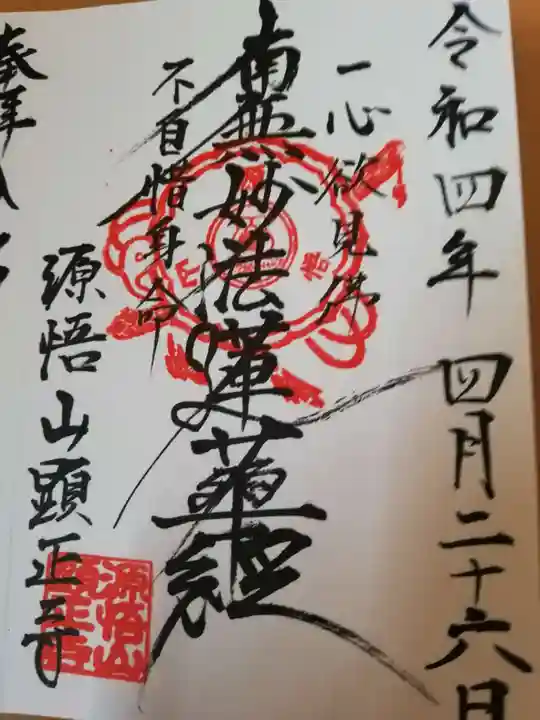 令和四年 四月二十六日
一心欲見佛
南無妙法蓮華経
不自惜身命
源悟山顕正寺
奉拝
源悟山
顕正寺